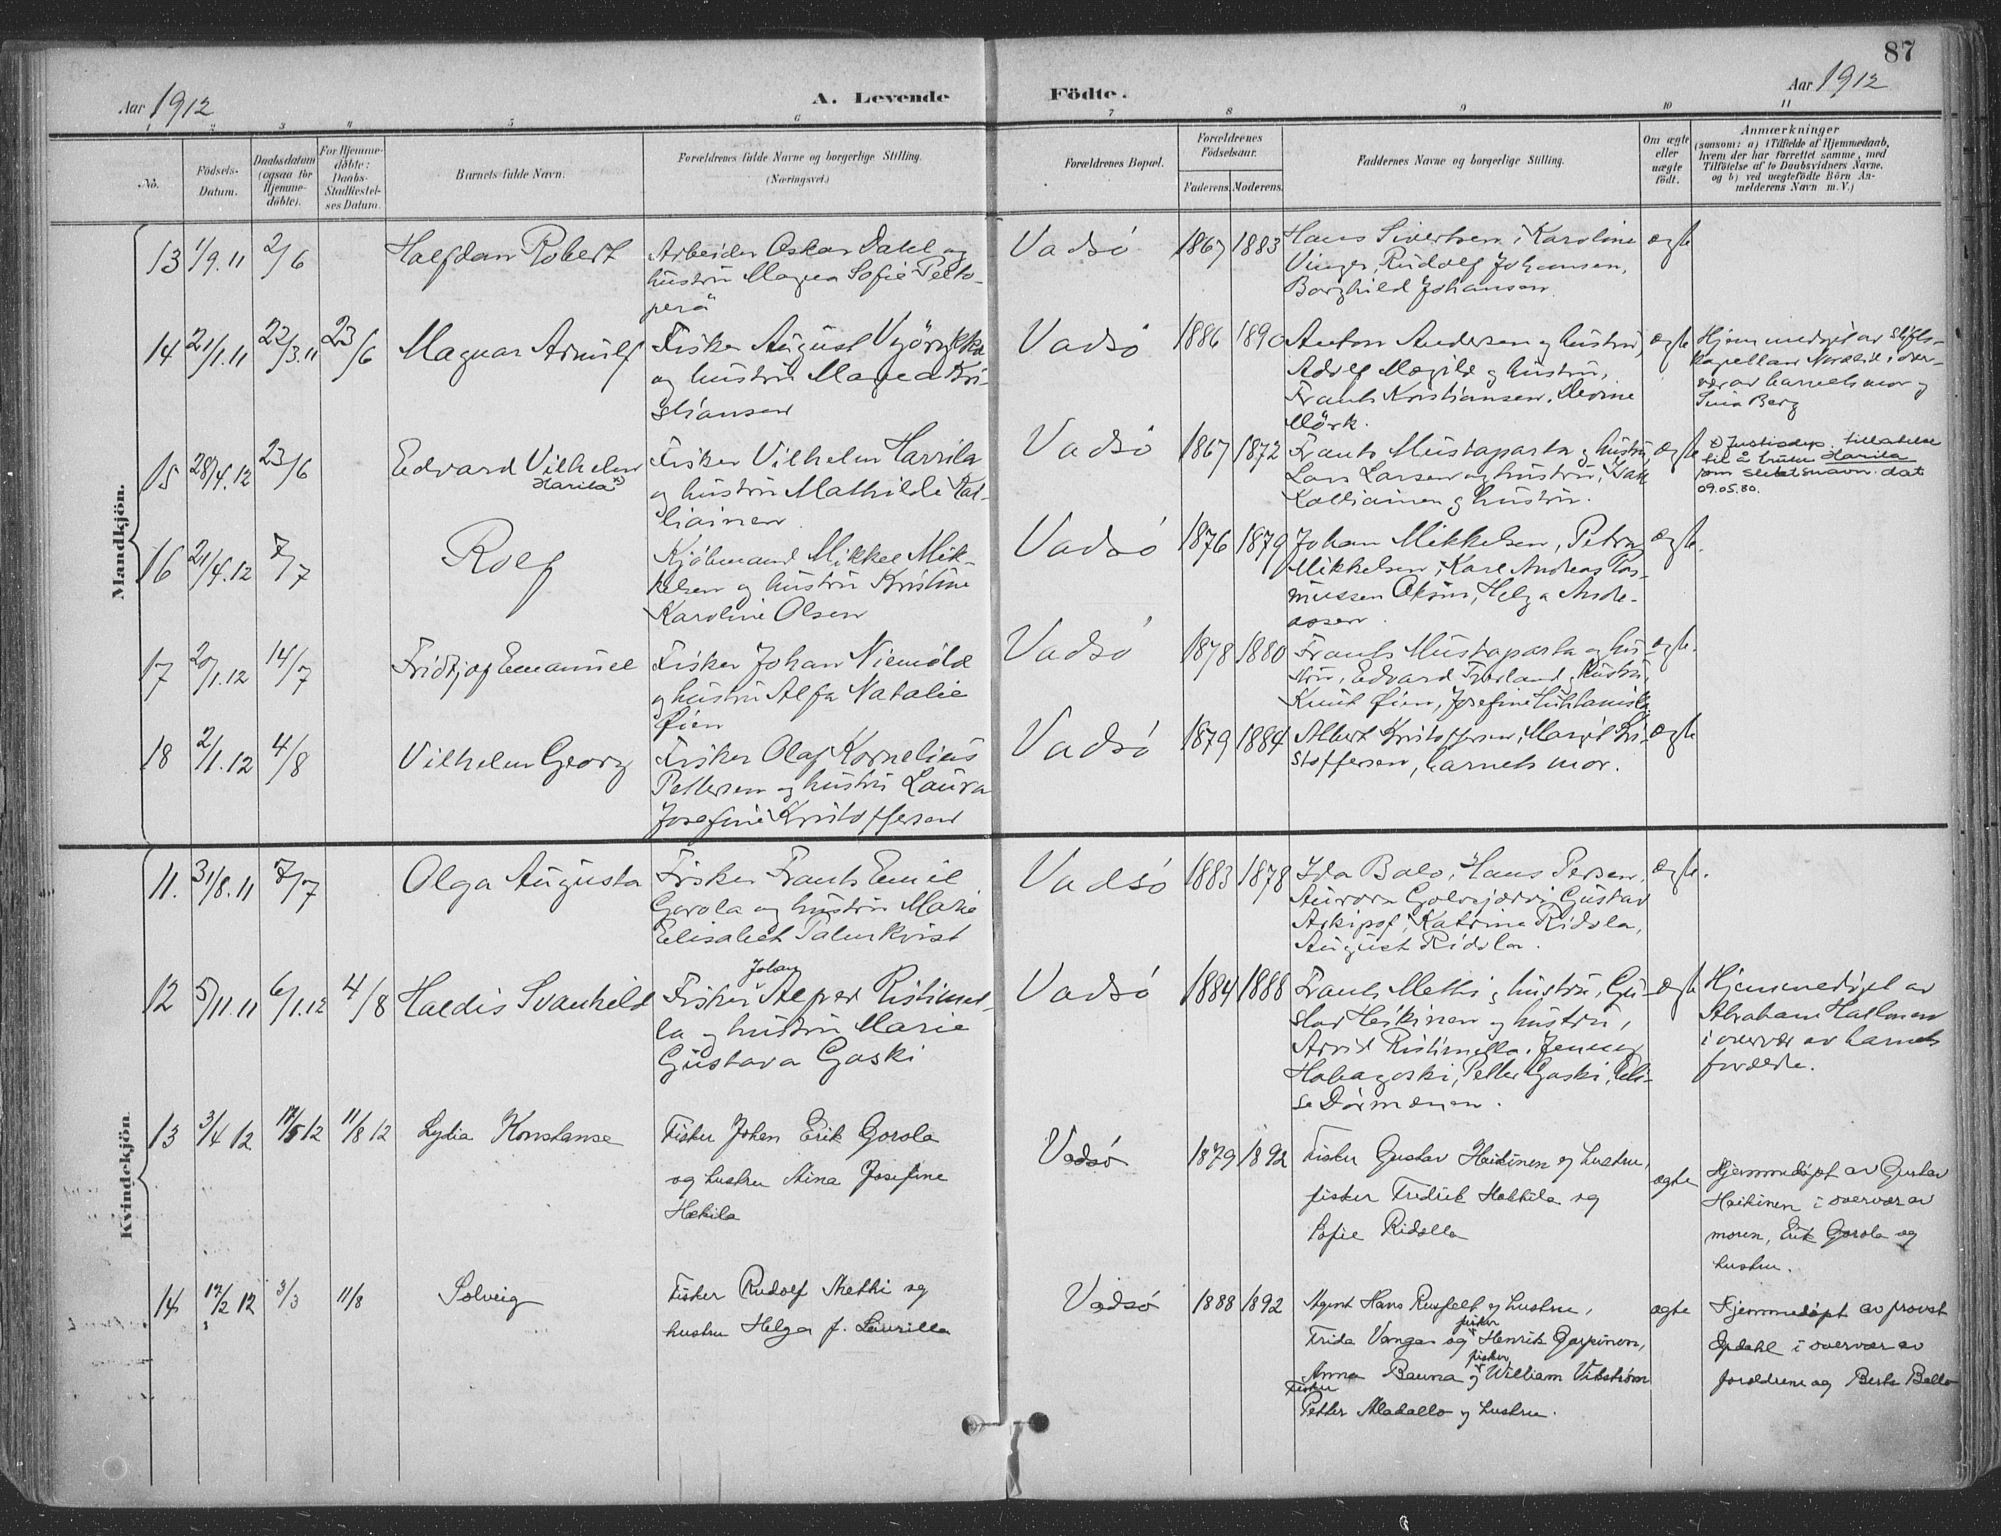 87
Aar 1912
A. Levende Födte.
Aar 1912
1 2 3 4 5 6 7 8 9 10 11
No.
Födsels-Datum.
Daabsdatum (ogsaa for Hjemmedöbte).
For Hjemmedöbte: Daabs-Stadfæstelses Datum.
Barnets fulde Navn.
Forældrenes fulde Navne og borgerlige Stilling.
(Næringsvei.)
Forældrenes Bopæl.
Forældrenes Födselsaar.
Faderens. Moderens.
Faddernes Navne og borgerlige Stilling.
Om ægte eller uægte födt.
Anmærkninger
(saasom: a) i Tilfælde af Hjemmedaab, hvem der har forrettet samme, med Tilföielse af to Daabsvidners Navne, og b) ved uægtefödte Börn Anmelderens Navn m. V.)
Mandkjön.
13 1/9.11 2/6 Halfdan Robert
Arbeider Oskar Dahl og
hustru Magna Sofie Pelto-
perä
Vadsö 1867 1883
Hans Sivertsen, Karoline
Vinger, Rudolf Johansen,
Borghild Johansen.
ægte
14 21/1.11 22/3.11 23/6 Magnar Arnulf
Fisker August
og hustru Magna Kri-
stiansen
Vadsö 1886 1890
Anton Andersen og hustru,
Adolf og hustru,
Frants Kristiansen,
Mörk.
ægte
Hjemmedöpt av Stifts-
kapellan i over-
vær av barnets mor og
Berg
15 28/4.12 23/6 Edvard Vilhelm
Harila x)
Fisker Vilhelm Harrila
og hustru Mathilde Kal-
liainen
Vadsö 1867 1872
Frants Mustaparta og hustru,
Lars Larsen og hustru,
Kalliainen og hustru.
ægte
x) Justisdep. tillatelse
til å bruke Harila
som slektsnavn dat
09.05.80.
16 21/4.12 7/7 Rolf
Kjöbmand Mikkel Mik-
kelsen og hustru Kristine
Karoline Olsen
Vadsö 1876 1879
Johan Mikkelsen, Petra
Mikkelsen, Karl Andreas Ras-
mussen Helga Andre-
assen.
ægte.
17 20/1.12 14/7 Fridtjof Emanuel
Fisker Johan Niemölä
og hustru Alfa Natalie
Øien
Vadsö 1878 1880
Frants Mustaparta og hu-
stru, Edvard hustru,
Knut Øien, Josefine
ægte.
18 2/1.12 4/8 Vilhelm Georg
Fisker Olaf Kornelius
Pettersen og hustru Laura
Josefine Kristoffersen
Vadsö 1879 1884
Albert Kristoffersen, Margit Kri-
stoffersen, barnets mor.
ægte
Kvindekjön.
11. 31/8.11 7/7 Olga Augusta
Fisker Frants Emil
Gorola og hustru Marie
Elisabet Palmkvist
Vadsö 1883 1878
Ida Balo, Hans Persen,
Aurora Gustav
Arkipof, Katrine Ridola,
August Ridola.
ægte.
12 5/11.11 6/1.12 4/8 Haldis Svanhild
Johan
Fisker Alfred Ristimel-
la og hustru Marie
Gustava Gaski
Vadsö 1884 1888
Frants Methi og hustru, Gu-
stav Heikinen og hustru,
Arvid Ristimella, Jenny
Habagoski, Petter Gaski, Eli-
se Dørmænen.
ægte
Hjemmedöpt av
Abraham Hallonen
i overvær av barnets
forældre.
13 3/4 12 17/5 12 11/8 12 Lydia Konstanse
Fisker Johan Erik Gorola
og hustru Aina Josefine
Hekila
Vadsö 1879 1892
Fisker Gustav Heikinen og hustru,
fisker Fredrik Hekkila og
Sofie Ridolla
ægte
Hjemmedöpt av Gustav
Heikinen i overvær av
moren, Erik Gorola og
hustru.
14 17/2 12 3/3 11/8 Solveig
Fisker Rudolf Methi og
hustru Helga f. Laurilla
Vadsö 1888 1892
Agent Hans og hustru,
fisker
Frida Vangen og Henrik
fisker
Anna Bauna og William Vikström
Fisker
Petter Aladallo og hustru.
ægte
Hjemmedöpt av provst
Opdahl i overvær av
foreldrene og Berta Ballo